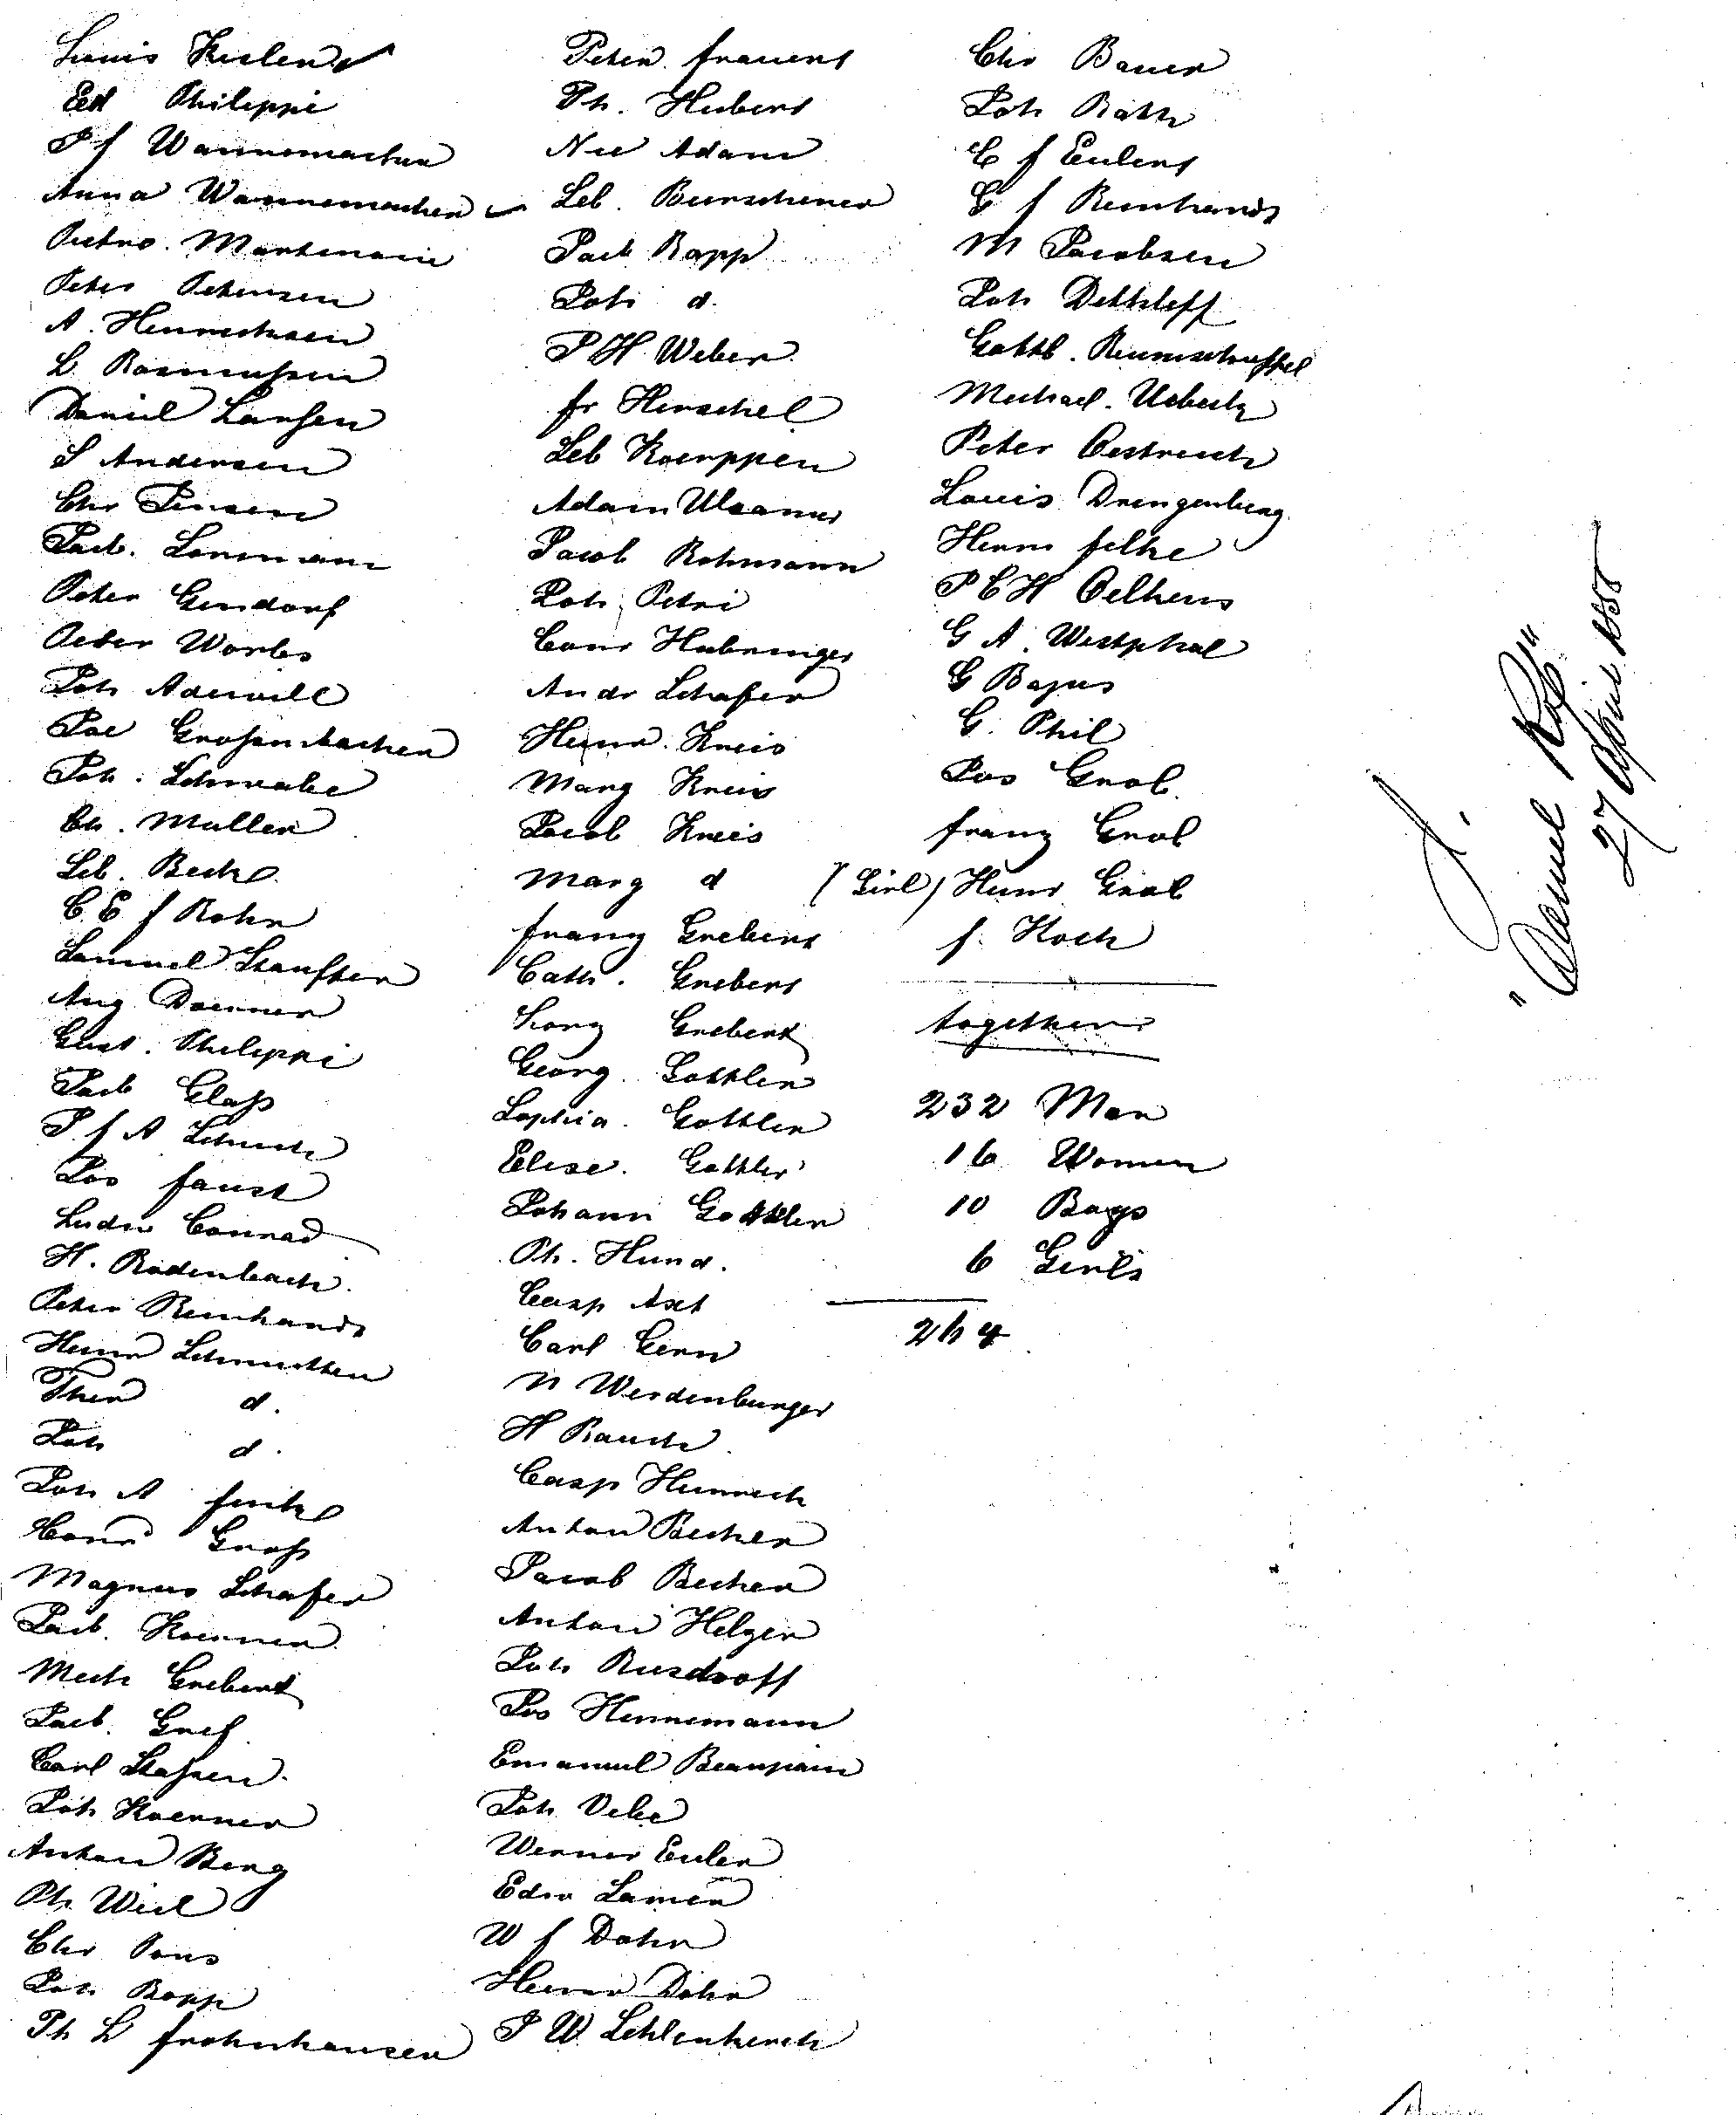 Louis Kislend
Ed Philippi
P f Wannemacher
Anna Wannemacher
Pietro. Martinovic
Peter Petersen
A. Hinrichsen
L Rasmussen
Daniel Larssen
S Andersen
Chr Jensen
Jacb. Lorsmann
Peter Gendorf
Peter Worbs
Joh Aderville
Jac Grossenbacher
Joh. Schwabe
Ch. Muller
Seb. Beck
C. E f Rohr
Samuel Stauffer
Aug Doerner
Gust. Philippi
Jacb Glass
P. f A Schuch
Jos Faust
Ludw Conrad
H. Rodenbach
Peter Reinhards
Heinr Schmitten
Ther d.
Joh d.
Joh A finke
Conr Gross
Magnus Schafer
Jacb. Koerner
Mich Grebert
Jacb. Gref
Carl Stassen.
Joh Koerner
Anton Berg
Ph. Weil
Chr Pons
Joh Bopp
Ph L frohnhausen
Peter. frauent
Ph. Hubert
Nic Adam
Seb. Burschener
Jacb Rapp
Joh d.
P H Weber
fr Herschel
Seb Koerppen
Adam Ulaamer
Jacob Rohmann
Joh. Petri
Conr Hubringer
Andr Schafer
Heinr. Kneis
Marg Kneis
Jacob Kneis
Marg d (Girl)
franz Grebert
Cath. Grebert
Georg Grebert
Georg. Gottler
Sophia. Gottler
Elise. Gottler
Johann Gottler
Ph. Hund.
Casp Axt
Carl Gern
N Werdenburger
H Rauch
Casp Heinrich
Anton Becker
Jacob Becker
Anton Helzer
Joh Rusdorff
Jos Hennemann
Emanuel Beaupain
Joh Debe
Werner Euler
Edw Lamen
W f Dohr
Heinr Dohr
P W Schlenkerich
Chr Bauer
Joh Rath
C f Eulert
G f Reinhards
M Jacobsen
Joh Dethleff
Gottl. Rumschussel
Michael. Uebech
Peter Oestreich
Louis Drengenberg
Herm felke
P C H Oelkers
G A. Westphal
G Bajus
G. Phil
Jos Grob
franz Grob
Heinr Grob
f. Koch
together
232 Men
16 Women
10 Boys
6 Girls
264
27 April 1855